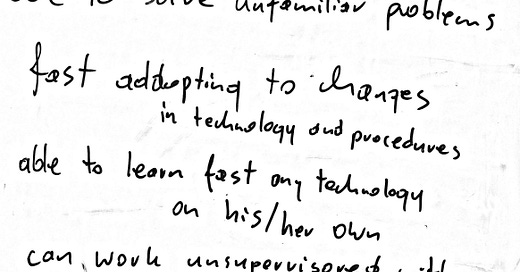 to solve unfamiliar problems
fast addopting to changes
in technology and procedures
able to learn fast any technology
on his/her own
can work